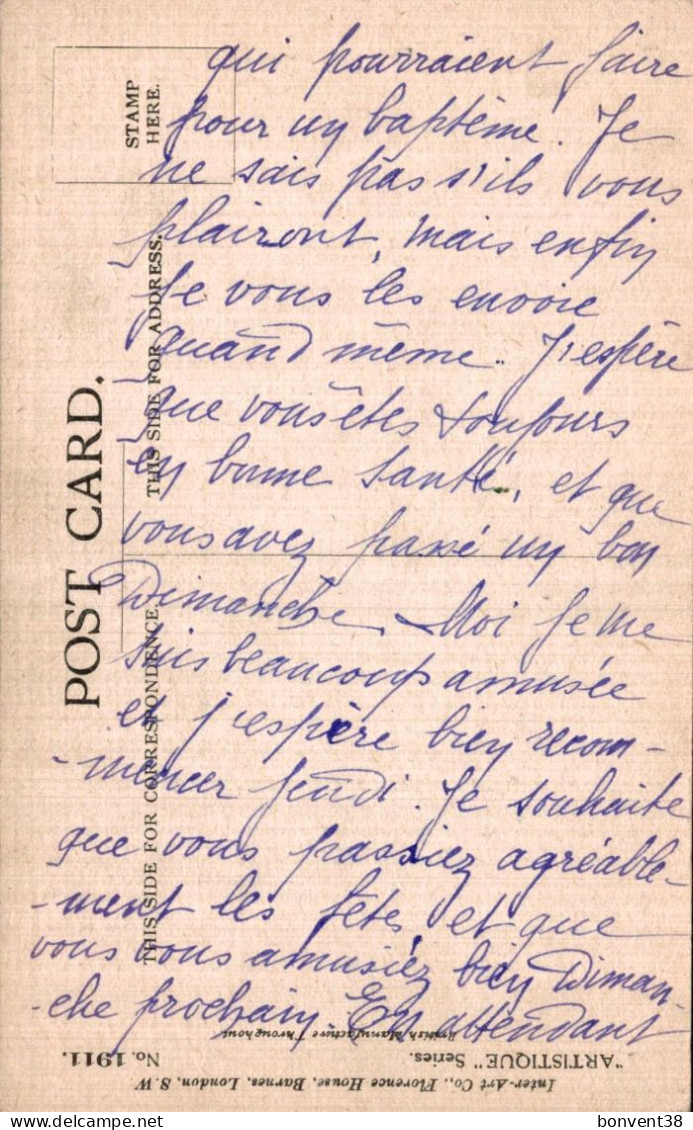 qui pourraient faire
pour un baptême. Je
ne sais pas s'ils vous
plairont, mais enfin
Je vous les envoie
quand même. J'espère
que vous êtes toujours
en bonne santé, et que
vous avez passé un bon
Dimanche. Moi Je me
suis beaucoup amusée
et j'espère bien recom-
-mencer Jeudi. Je souhaite
que vous passiez agréable-
-ment les fêtes, et que
vous vous amusiez bien Diman-
-che prochain. En attendant
STAMP
HERE.
POST CARD.
THIS SIDE FOR ADDRESS.
THIS SIDE FOR CORRESPONDENCE.
British Manufacture Throughout
"ARTISTIQUE" Series.
No. 1911.
Inter-Art Co., Florence House, Barnes, London, S.W
bonvent38